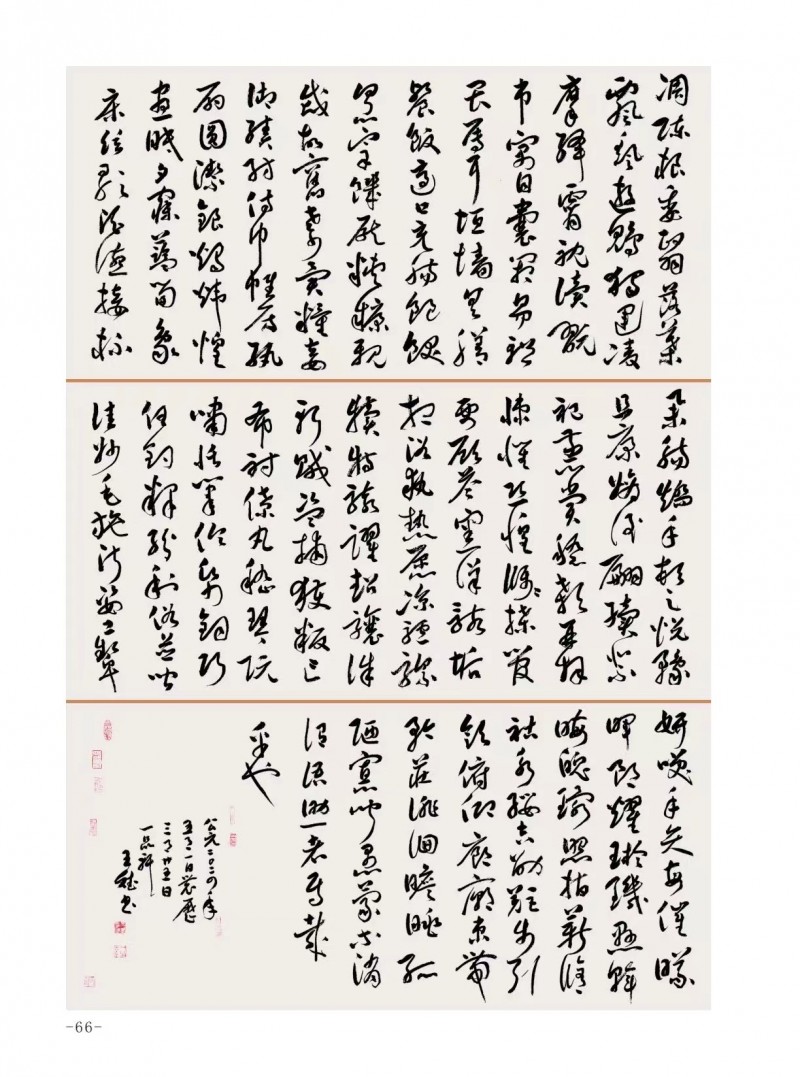 凋陳根委翳落葉
飄颻遊鵾獨運凌
摩絳霄耽讀翫
市寓目囊箱易輶
畏屬耳垣墻具膳
餐飯適口充腸飽飫
烹宰饑厭糟糠親
戚故舊老少異糧妾
御績紡侍巾帷房紈
扇圓潔銀燭煒煌
晝眠夕寐藍筍象
床弦歌酒讌接杯
舉觴矯手頓足悅豫
且康嫡後嗣續祭
祀蒸嘗稽顙再拜
悚懼恐惶牋牒簡
要顧答審詳骸垢
想浴執熱願涼驢騾
犢特駭躍超驤誅
斬賊盜捕獲叛亡
布射僚丸嵇琴阮
嘯恬筆倫紙鈞巧
任釣釋紛利俗並皆
佳妙毛施淑姿工顰
妍笑年矢每催曦
暉朗耀璇璣懸斡
晦魄環照指薪修
祜永綏吉劭矩步引
領俯仰廊廟束帶
矜莊徘徊瞻眺孤
陋寡聞愚蒙等誚
謂語助者焉哉
乎也
公元二〇二四年
五月一日農歷
三月廿
日
一品軒
王
書
-66-